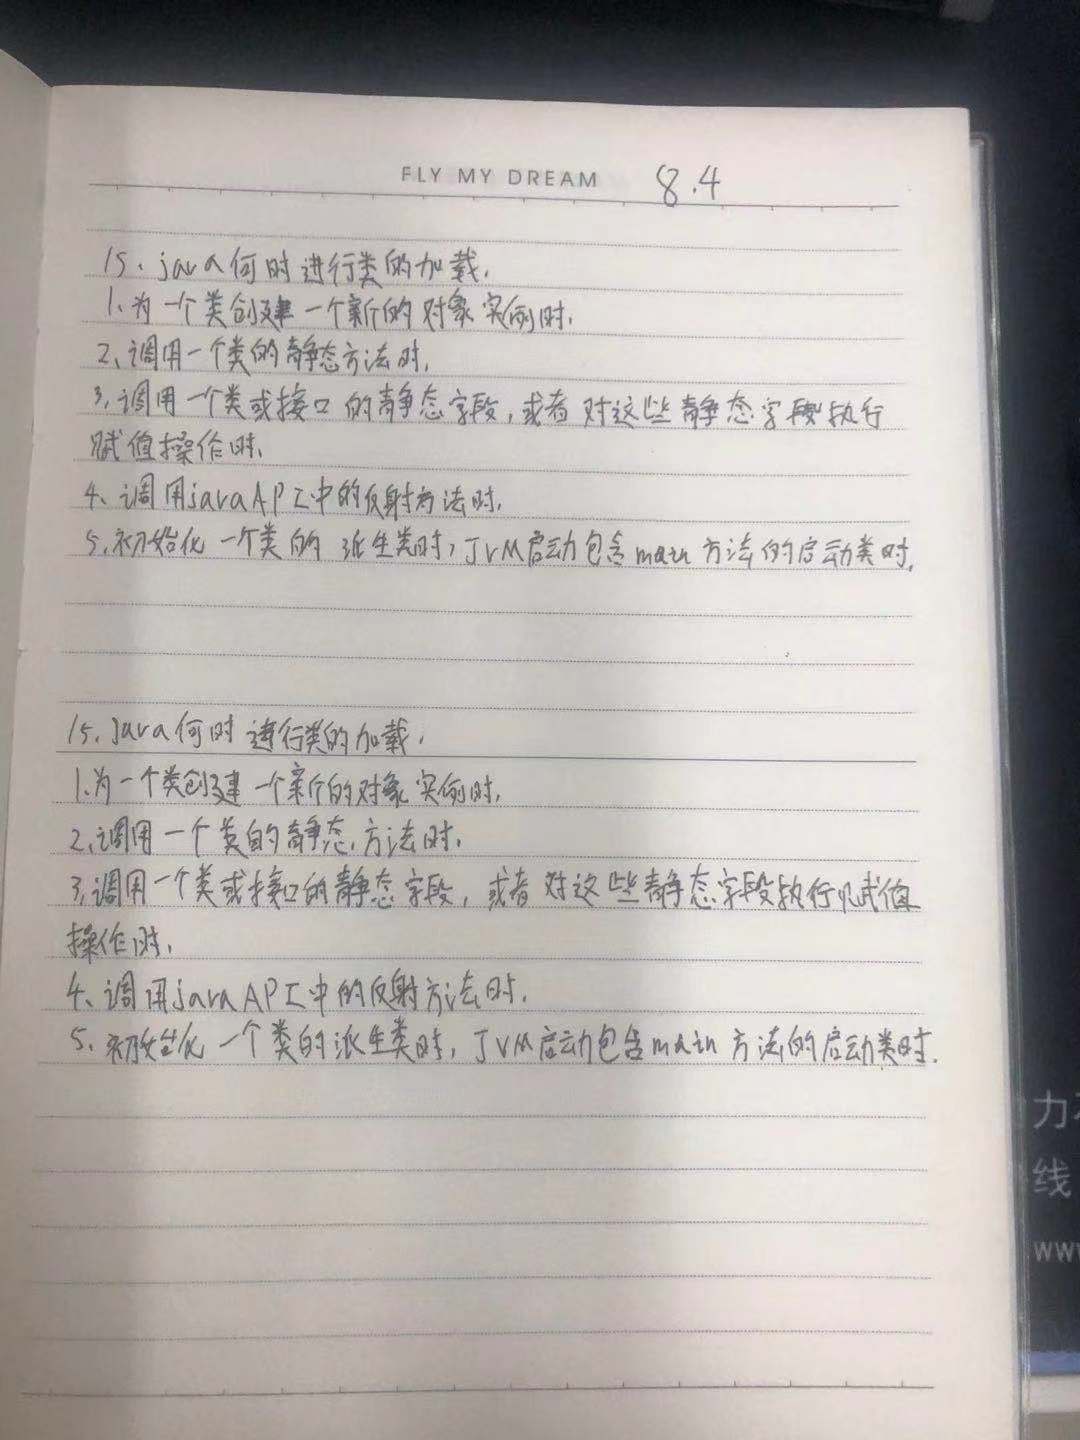 FLY MY DREAM 8.4
15、java何时进行类的加载.
1、为一个类创建一个新的对象实例时.
2、调用一个类的静态方法时.
3、调用一个类或接口的静态字段,或者对这些静态字段执行
赋值操作时.
4、调用javaAPI中的反射方法时.
5、初始化一个类的派生类时,JVM启动包含main方法的启动类时.
15、Java何时进行类的加载.
1、为一个类创建一个新的对象实例时.
2、调用一个类的静态方法时.
3、调用一个类或接口的静态字段,或者对这些静态字段执行赋值
操作时.
4、调用javaAPI中的反射方法时.
5、初始化一个类的派生类时,JVM启动包含main方法的启动类时.
力
线
www